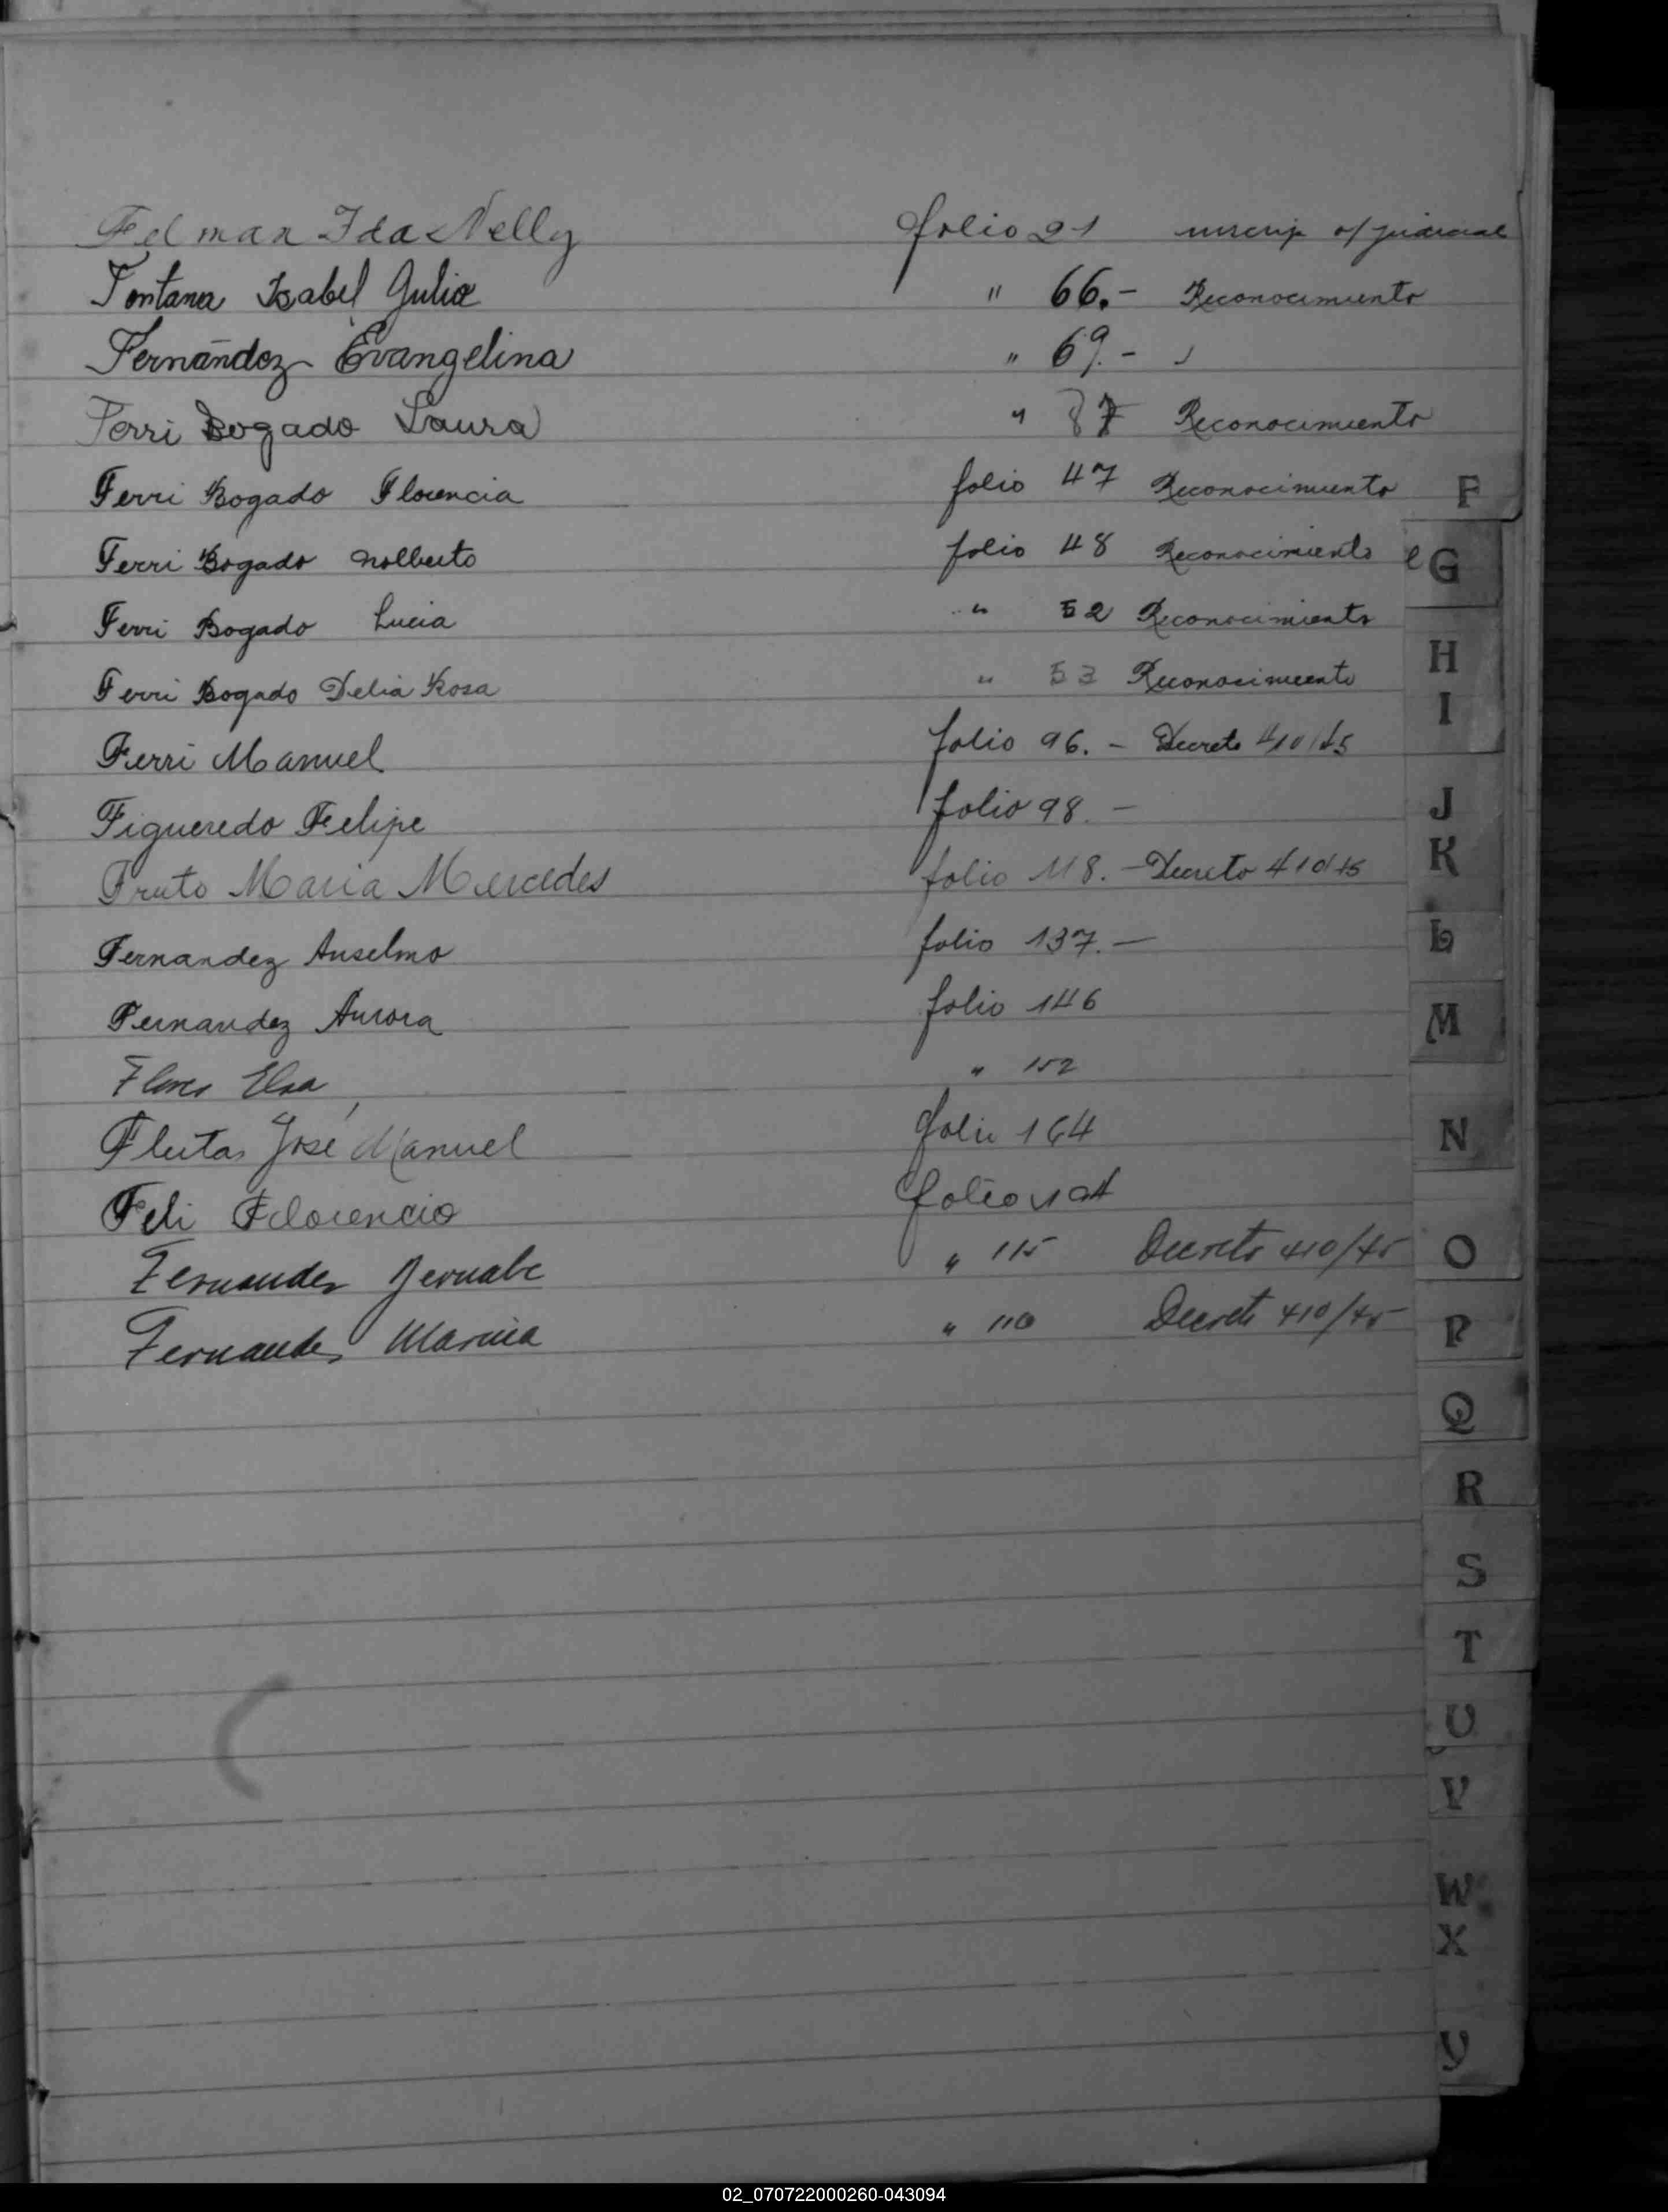 Felman Ida Nelly folio 21 inscrip o/ judicial
Fontana Isabel Julia " 66.- Reconocimiento
Fernández Evangelina " 69.- "
Ferri Bogado Laura " 87 Reconocimiento
Ferri Bogado Florencia folio 47 Reconocimiento
Ferri Bogado Nolberto folio 48 Reconocimiento
Ferri Bogado Lucia " 52 Reconocimiento
Ferri Bogado Delia Rosa " 53 Reconocimiento
Ferri Manuel folio 96. - Decreto 410/45
Figueredo Felipe folio 98. -
Fruto Maria Mercedes folio 118. - Decreto 410/45
Fernandez Anselmo folio 137. -
Fernandez Aurora folio 146
Flores Elsa " 152
Fleitas José Manuel folio 164
Feli Florencio folio
Fernandez Bernabe " 115 Decreto 410/45
Fernandez Marcia " 110 Decreto 410/45
F
G
H
I
J
K
L
M
N
O
P
Q
R
S
T
U
V
W
X
Y
02_070722000260-043094